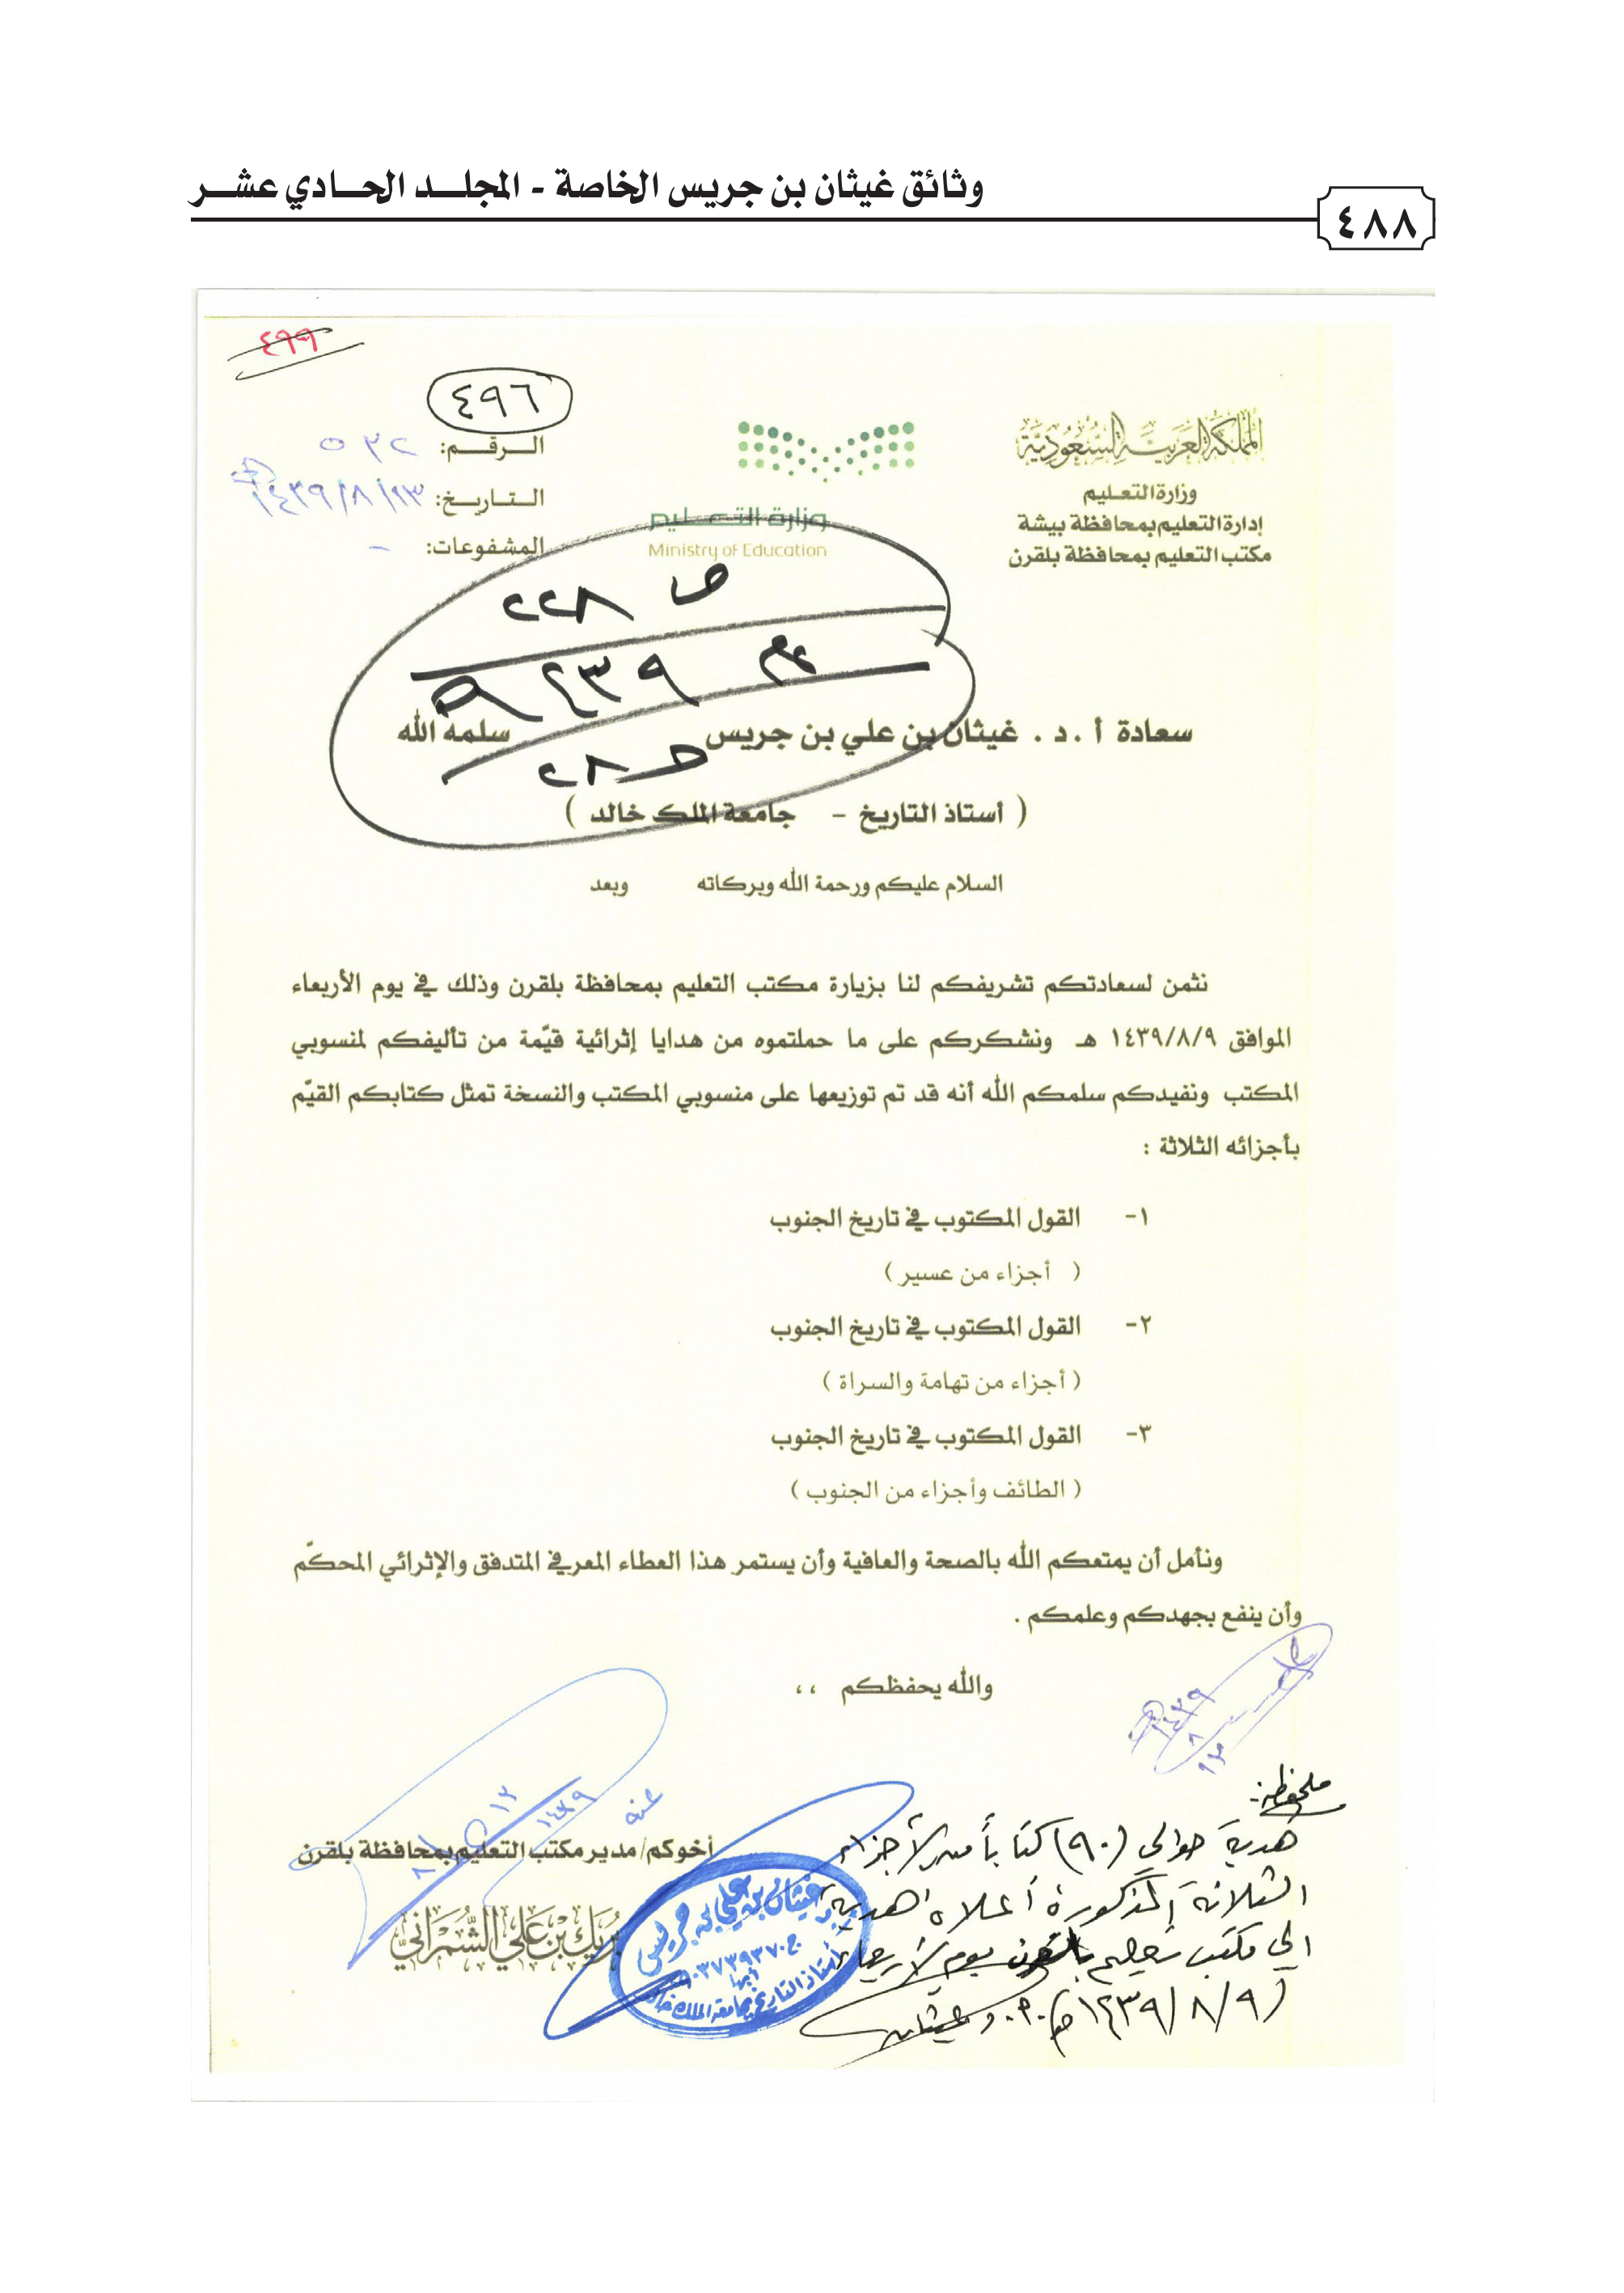 وثائق غيثان بن جريس الخاصة - المجلـــد الحـــادي عشـــر
٤٨٨
٤٩٩
٤٩٦
المملكة العربية السعودية
وزارة التعليم
إدارة التعليم بمحافظة بيشة
مكتب التعليم بمحافظة بلقرن
وزارة التعليم
Ministry of Education
الـــرقـــم: ٥٣٢
التـاريـخ: ١٤٣٩/٨/١٣هـ
المشفوعات: -
ص ٢٢٨
ع م ١٤٣٩هـ
سعادة أ . د . غيثان بن علي بن جريس سلمه الله
( أستاذ التاريخ - جامعة الملك خالد )
السلام عليكم ورحمة الله وبركاته وبعد
نثمن لسعادتكم تشريفكم لنا بزيارة مكتب التعليم بمحافظة بلقرن وذلك في يوم الأربعاء
الموافق ١٤٣٩/٨/٩ هـ ونشكركم على ما حملتموه من هدايا إثرائية قيّمة من تأليفكم لمنسوبي
المكتب ونفيدكم سلمكم الله أنه قد تم توزيعها على منسوبي المكتب والنسخة تمثل كتابكم القيّم
بأجزائه الثلاثة :
١- القول المكتوب في تاريخ الجنوب
( أجزاء من عسير )
٢- القول المكتوب في تاريخ الجنوب
( أجزاء من تهامة والسراة )
٣- القول المكتوب في تاريخ الجنوب
( الطائف وأجزاء من الجنوب )
ونأمل أن يمتعكم الله بالصحة والعافية وأن يستمر هذا العطاء المعرفي المتدفق والإثرائي المحكّم
وأن ينفع بجهدكم وعلمكم .
والله يحفظكم ،،
أخوكم/ مدير مكتب التعليم بمحافظة بلقرن
بُريك بن علي الشمراني
ملحوظة:
هدية حوالي (٩٠) كتاباً من الأجزاء
الثلاثة المذكورة أعلاه أهديت
إلى مكتب تعليم بلقرن يوم الأربعاء
(١٤٣٩/٨/٩هـ). أ. د غيثان
غيثان بن علي بن جريس
أبها
أستاذ التاريخ بجامعة الملك خالد